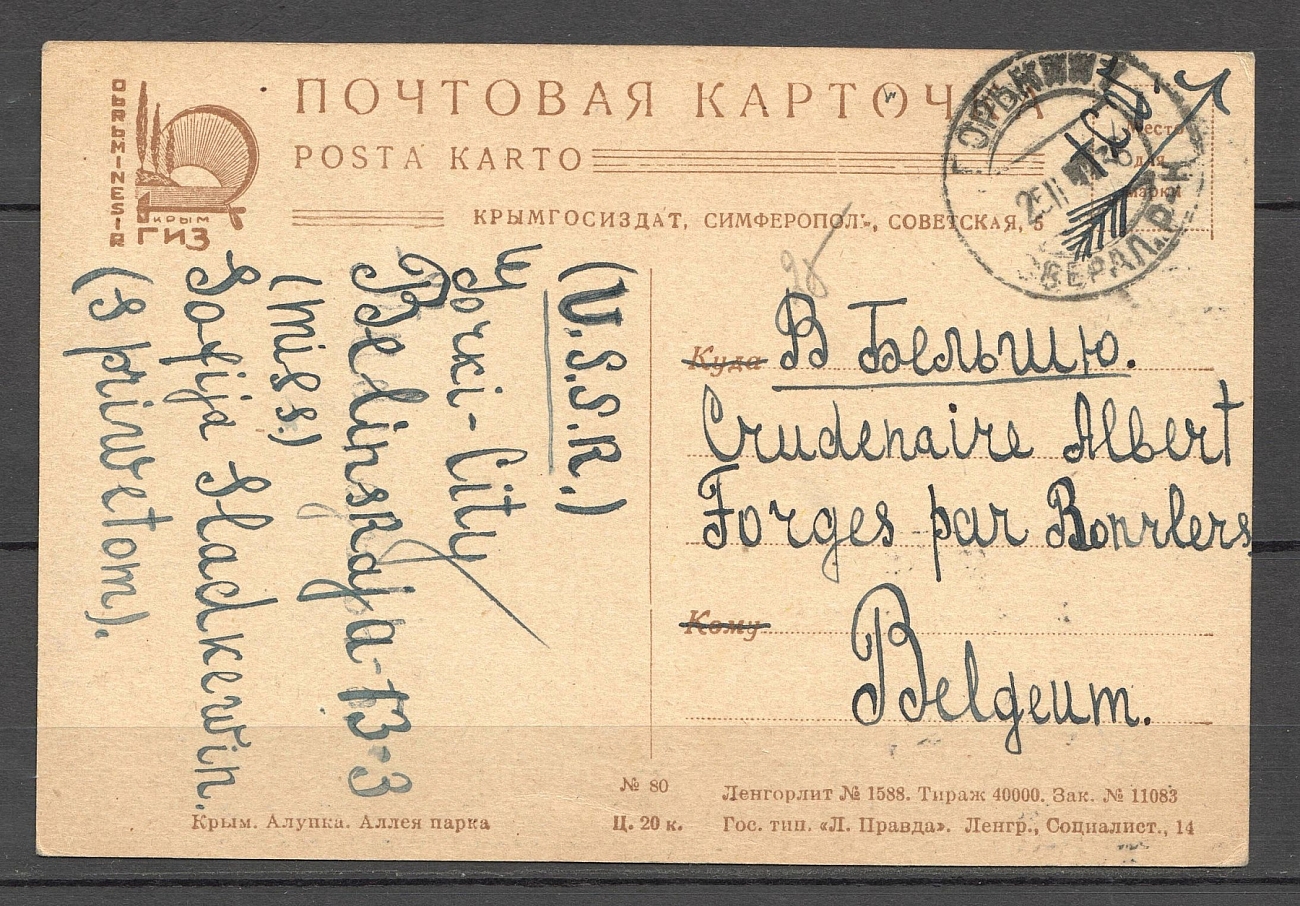 ПОЧТОВАЯ КАРТОЧКА
POSTA KARTO
КРЫМГОСИЗДАТ, СИМФЕРОПОЛЬ, СОВЕТСКАЯ, 5
QЬRЬMINESIR
КРЫМ
ГИЗ
Место
для
марки
25
(U.S.S.R.)
Gorki-City
Belinskaja-13-3
(mis s.)
Sofija Sladkewin.
(S priwetom).
Куда
В Бельгию.
Crudenaire Albert
Forges par Bonrlers
Кому
Belgeum.
№ 80
Ц. 20 к.
Крым. Алупка. Аллея парка
Ленгорлит № 1588. Тираж 40000. Зак. № 11083
Гос. тип. «Л. Правда». Ленгр., Социалист., 14